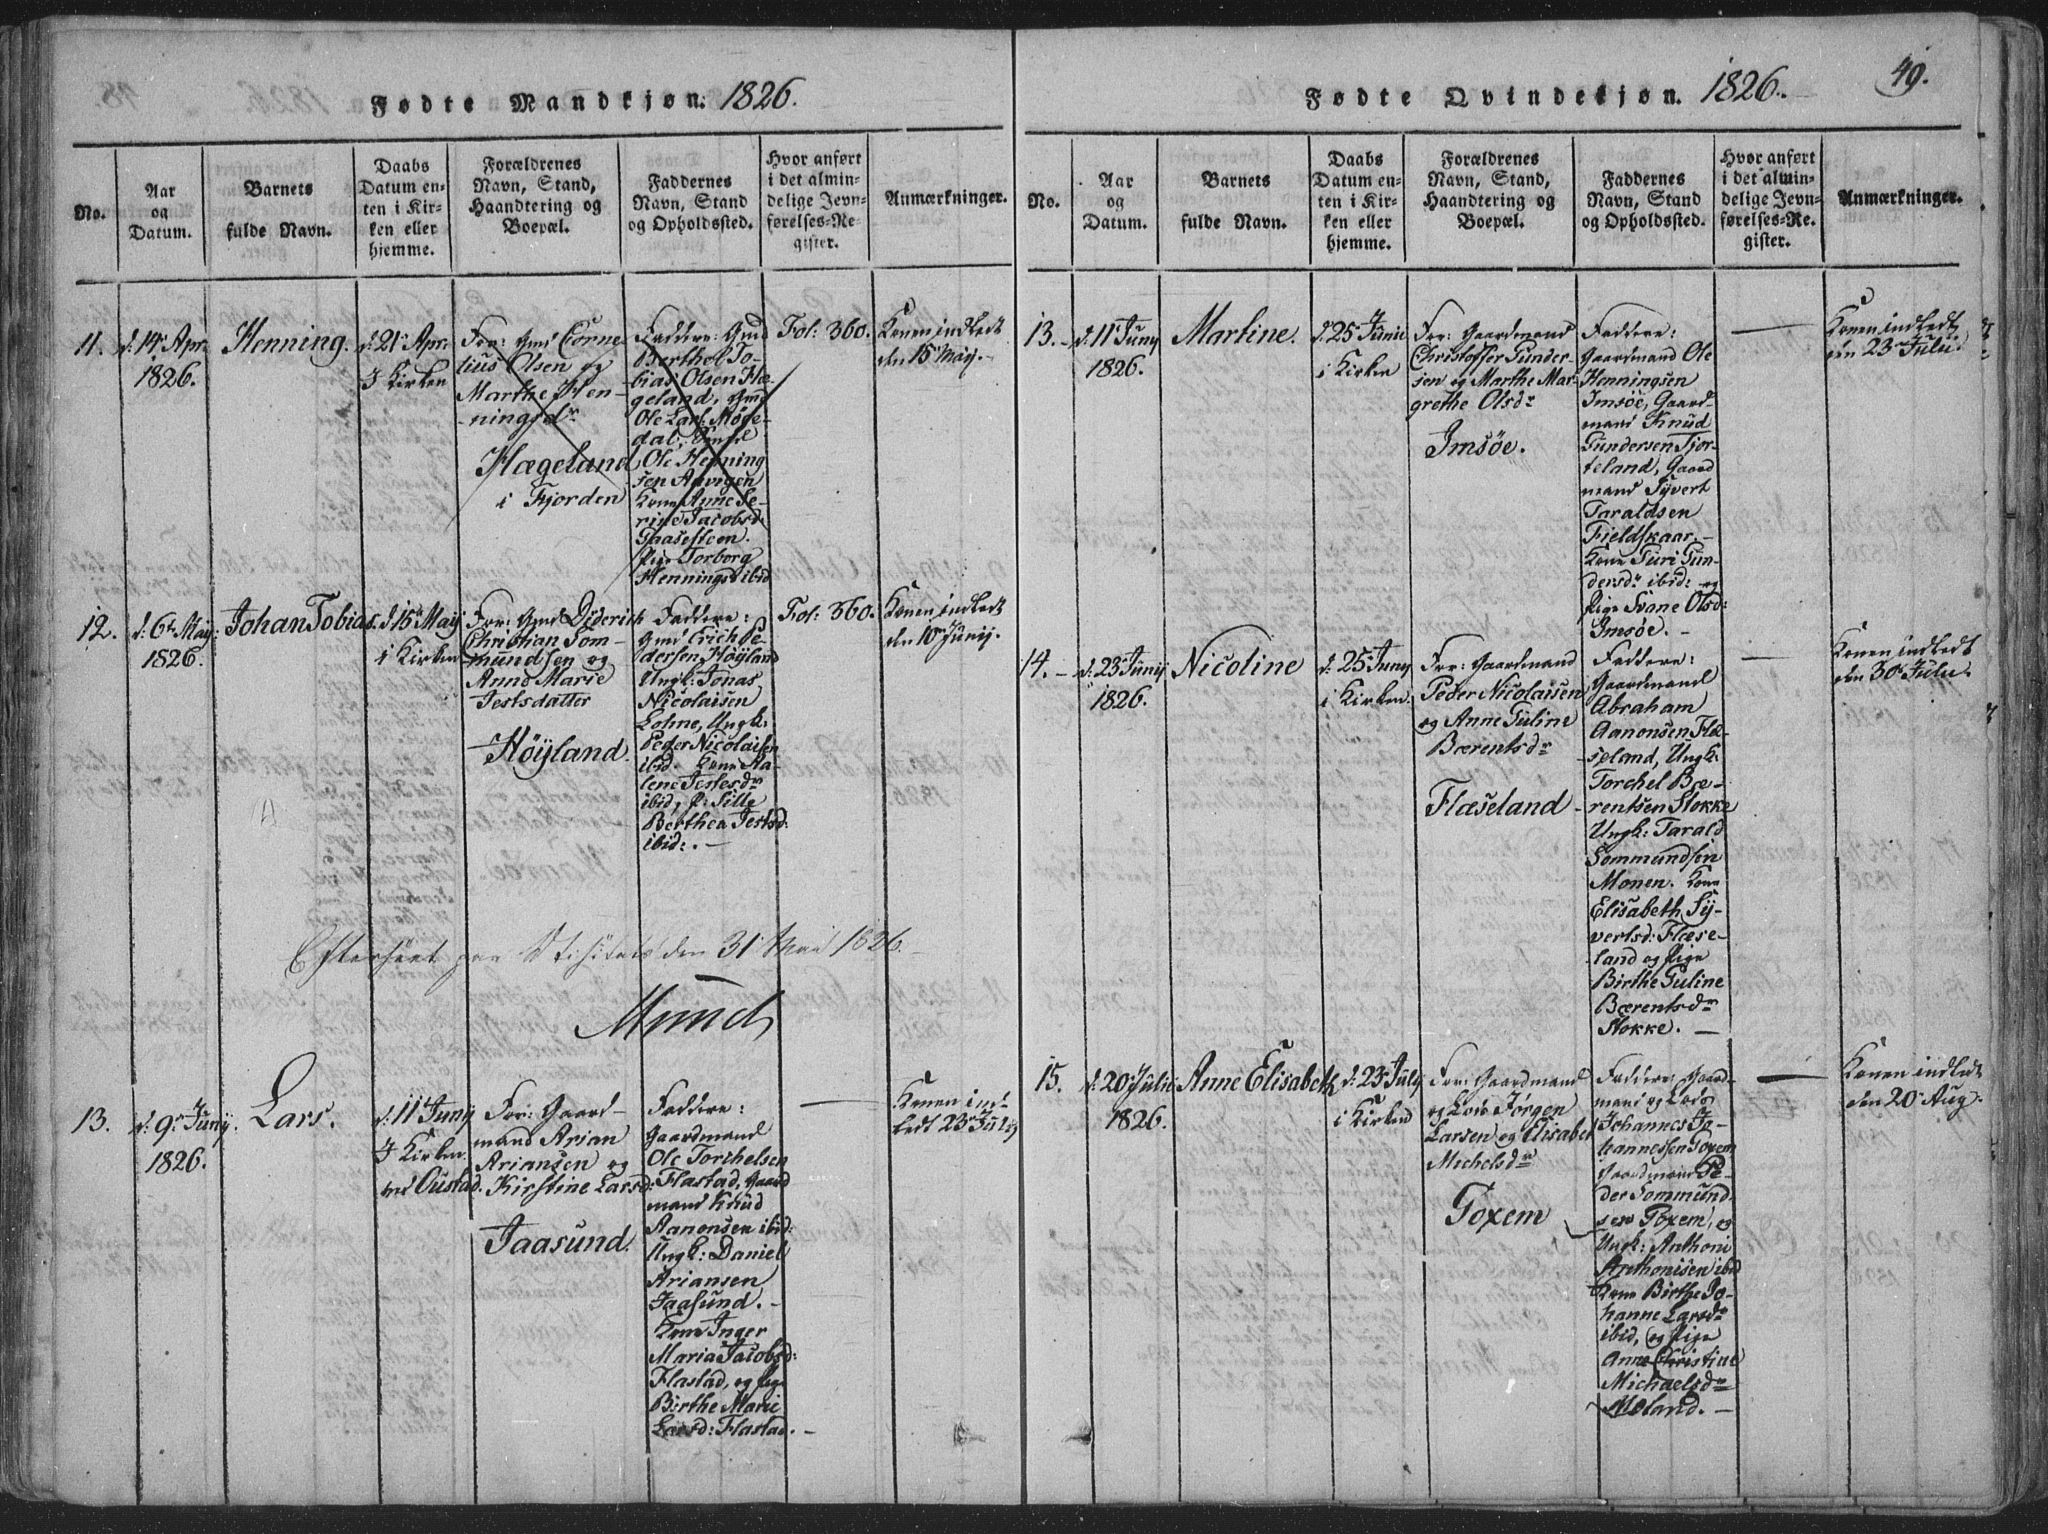 Fødte Mandkjøn: 1826.
No.
Aar
og
Datum.
Barnets
fulde Navn.
Daabs
Datum en-
ten i Kir-
ken eller
hjemme.
Forældrenes
Navn, Stand,
Haandtering og
Boepæl.
Faddernes
Navn, Stand
og Opholdssted.
Hvor anført
i det almin-
delige Jevn-
førelses-Re-
gister.
Anmærkninger.
11.
d: 14de Apr:
1826.
Henning.
d: 21de Apr:
I Kirken
For: Gmd Corne
lius Olsen og
Marthe Hen-
ningsdr
Hægeland
i Fjorden
Faddere: Gmd
Berthel To-
bias Olsen Hæ-
geland, Gmd
Ole Lars:
dal,
Ole Henning
sen Aavigen
Kone Anne Se-
rine Jacobsd:
Gaasesteen.
Pige Torborg
Henningsd ibid
Fol: 360.
Konen indledt
den 15 Maÿ.
12.
d: 6te Maÿ:
1826.
Johan Tobias.
d: 15de Maÿ
i Kirken
For: Gmd Diderich
Christian Tom-
mundsen og
Anne Marie
Jestsdatter
Høÿland.
Faddere:
Gmd Erich Pe-
dersen Høÿland
Ungk: Jonas
Nicolaisen
Lohne, Ungk:
Peder Nicolaisen
ibid. Kone Aa-
lene Jestesdr
ibid, P: Sille
Berthea Jestsd:
ibid:. -
Fol: 360.
Konen indledt
den 10de Junij.
Efterseet paa Visitats den 31 Mai 1826.
Munch
13.
d: 9de Junÿ.
1826.
Lars.
d: 11 Junÿ
I Kirken
ved Oustad.
For: Gaard-
mand Arian
Ariansen og
Kirstine Larsd:
Jaasund.
Faddere:
Gaardmand
Ole Torchelsen
Flastad, Gaard
mand Knud
Aanonsen ibid:
Ungk: Daniel
Ariansen
Jaasund. -
Kone Inger
Maria Jacobsd:
Flastad, og Pige
Birthe Marie
Larsd: Flastad. -
Konen ind-
ledt 23de Julÿ
Fødte Qvindekjøn. 1826. 49.
No.
Aar
og
Datum.
Barnets
fulde Navn.
Daabs
Datum en-
ten i Kir-
ken eller
hjemme.
Forældrenes
Navn, Stand,
Haandtering og
Boepæl.
Faddernes
Navn, Stand
og Opholdssted.
Hvor anført
i det almin-
delige Jevn-
førelses-Re-
gister.
Anmærkninger.
13. -
d: 11te Junÿ
1826.
Martine.
d: 25 Junii
i Kirken
For: Gaardmand
Christoffer Gunder-
sen og Marthe Mar-
grethe Olsdr
Imsøe.
Faddere:
Gaardmand Ole
Henningsen
Imsøe, Gaard-
mand Knud
Gundersen Tjor-
teland, Gaard
mand Syvert
Taraldsen
Fieldskaar, -
Kone Guri Gun-
dersdr ibid: og
Pige Svane Olsd:
Imsøe. -
Konen indledt
den 23de Julii.
14. -
d: 23de Junij
1826.
Nicoline
d: 25de Junÿ
i Kirken.
For: Gaardmand
Peder Nicolaisen
og Anne Guline
Bærentsdr
Flæseland
Faddere:
Gaardmand
Abraham
Aanonsen Flæ-
seland, Ungk:
Torchel Bæ-
rentsen Stokke
Ungk: Tarald
Tommundsen
Monen. Kone
Elisabeth Sÿ-
vertsd: Flæse-
land og Pige
Birthe Guline
Bærentsdr
Stokke. -
Konen indledt
den 30de Julii.
15.
d: 20de Julii
1826.
Anne Elisabeth
d: 23de Julÿ
i Kirken
For: Gaardmand
og Lods Jørgen
Larsen og Elisabet
Michelsdr
Goxem
Faddere: Gaard-
mand og Lods
Johannes Jo-
hannessen Goxem
Gaardmand Pe-
der Tommund-
sen Goxem, og
Ungk: Anthoni
Anthonisen ibid
Kone Birthe Jo-
hanne Larsdr
ibid, og Pige
Anne Christine
Michaelsdr
Uleland. -
Konen indledt
den 20de Aug.